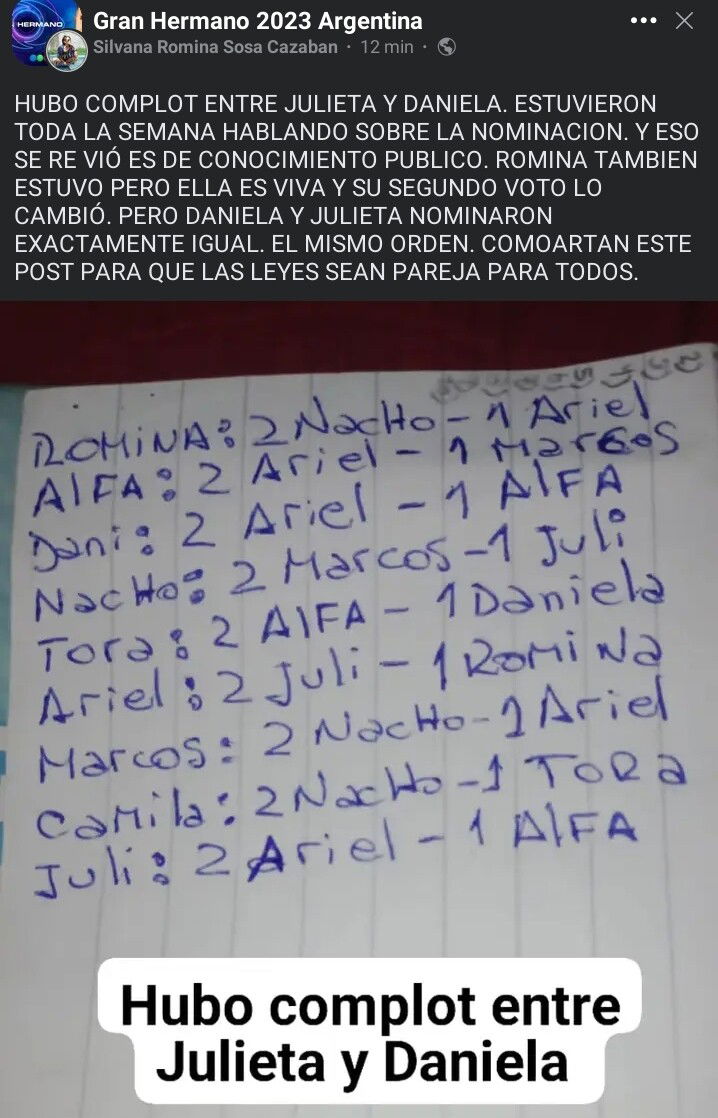 HERMANO
Gran Hermano 2023 Argentina
Silvana Romina Sosa Cazaban · 12 min ·
HUBO COMPLOT ENTRE JULIETA Y DANIELA. ESTUVIERON
TODA LA SEMANA HABLANDO SOBRE LA NOMINACION. Y ESO
SE RE VIÓ ES DE CONOCIMIENTO PUBLICO. ROMINA TAMBIEN
ESTUVO PERO ELLA ES VIVA Y SU SEGUNDO VOTO LO
CAMBIÓ. PERO DANIELA Y JULIETA NOMINARON
EXACTAMENTE IGUAL. EL MISMO ORDEN. COMOARTAN ESTE
POST PARA QUE LAS LEYES SEAN PAREJA PARA TODOS.
ROMINA: 2 NacHo - 1 Ariel
AlFA: 2 Ariel - 1 Marcos
Dani: 2 Ariel - 1 AlFA
NacHo: 2 Marcos - 1 Juli
Tora: 2 AlFA - 1 Daniela
Ariel: 2 Juli - 1 ROMiNa
Marcos: 2 NacHo - 1 Ariel
CaMila: 2 NacHo - 1 TORa
Juli: 2 Ariel - 1 AlFA
Hubo complot entre
Julieta y Daniela